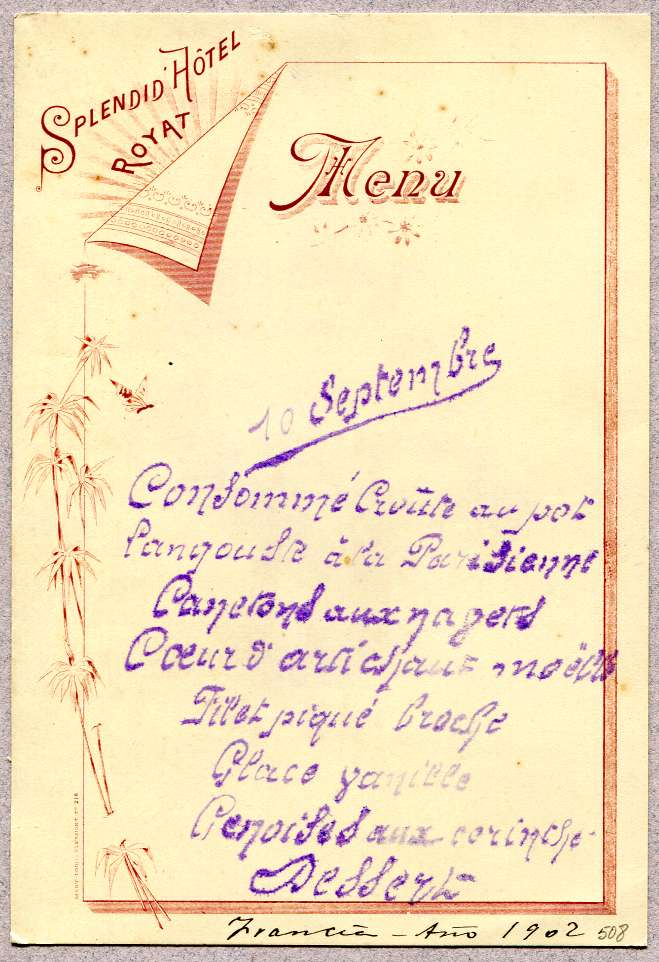 SPLENDID' HÔTEL
ROYAT
Menu
10 Septembre
Consommé Croûte au pot
Langouste à la Parisienne
Canetons aux nagets
Cœur d'artichaut moëlle
Filet piqué broche
Glace vanille
Genoises aux corinthe
Dessert
Francia - Año 1902 508